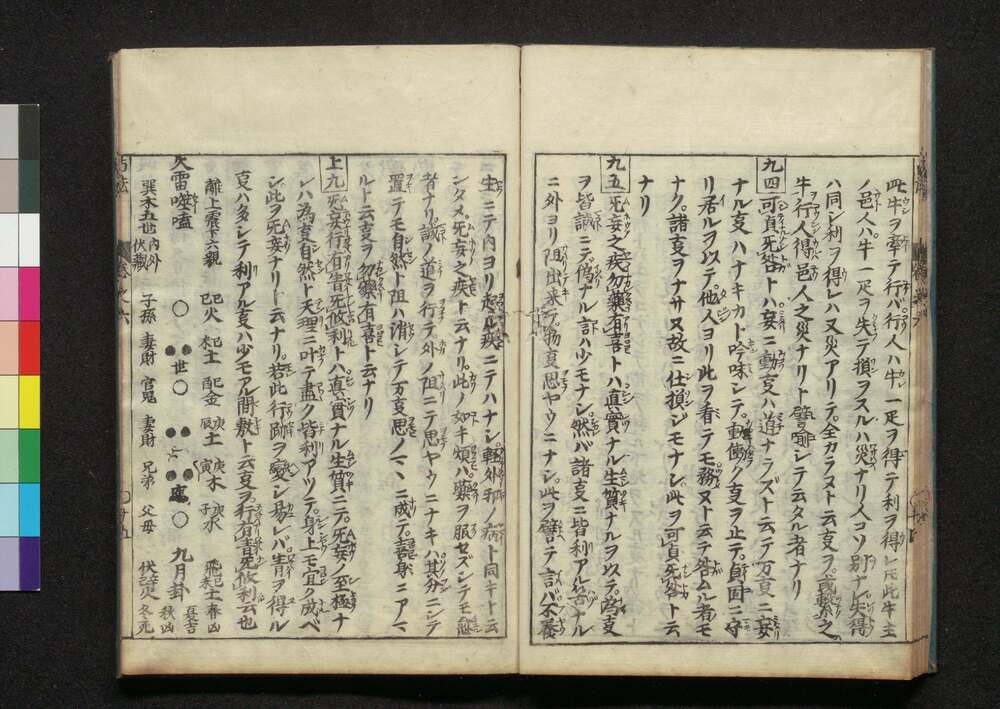 此牛ヲ牽テ行バ行人ハ牛一疋ヲ得テ利ヲ得レ𪜈此牛主
ノ邑人ハ牛一疋ヲ失テ損ヲスルハ災ナリ人コソ別ナレ失得
ハ同シ利ヲ得レハ又災アリテ全カラヌト云支ヲ或繋之
牛行人得邑人之災ナリト譬喩シテ云タル者ナリ
九四 可貞无咎トハ妄ニ動支ハ道ナラズト云テ万支ニ妄
ナル支ハナキカト吟味シテ動働ク支ヲ止テ貞固ニ守
リ居ルヲ以テ他人ヨリ此ヲ看テモ務ヌト云テ咎ムル者モ
ナク諸支ヲナサヌ故ニ仕損シモナシ此ヲ可貞无咎ト云
ナリ
九五 无妄之疾勿藥有喜トハ真實ナル生質ナルヲ以テ為支
ヲ皆誠ニテ偽ナル訴ハ少モナシ然バ諸支ニ皆利アル筈ナル
ニ外ヨリ阻出来テ物支思ヤウニナシ此ヲ譬テ云バ不養
生ニテ内ヨリ起ル疾ニテハナシ輕外邪ノ病ト同キト云
ンタメ无妄之疾ト云ナリ此ノ如キ煩ハ藥ヲ服セズシテモ愈
者ナリ誠ノ道ヲ行テ外ノ阻ニテ思ヤウニナキハ其分ニシテ
置テモ自然ト阻ハ消シテ万支思ノマヽニ成テ喜身ニアマ
ルト云支ヲ勿藥有喜ト云ナリ
上九 无妄行有眚无攸利トハ真實ナル生質ニテ无妄ノ至極ナ
レハ為支自然ト天理ニ叶テ盡ク皆利アツテ身上モ宜ク成ベ
シ此ヲ无妄ナリト云ナリ若此行跡ヲ變シ易レバ眚ヲ得ル
支ハ多シテ利アル支ハ少モアル間敷ト云支ヲ行有眚无攸利云也
火雷噬嗑 九月卦
離上震下六親 巳火 未土 酉金 辰土 寅木 子水
巽木五世 内外 伏藏 子孫 妻財 官鬼 妻財 兄弟 父母
世 應
春凶 夏吉 秋凶 冬死